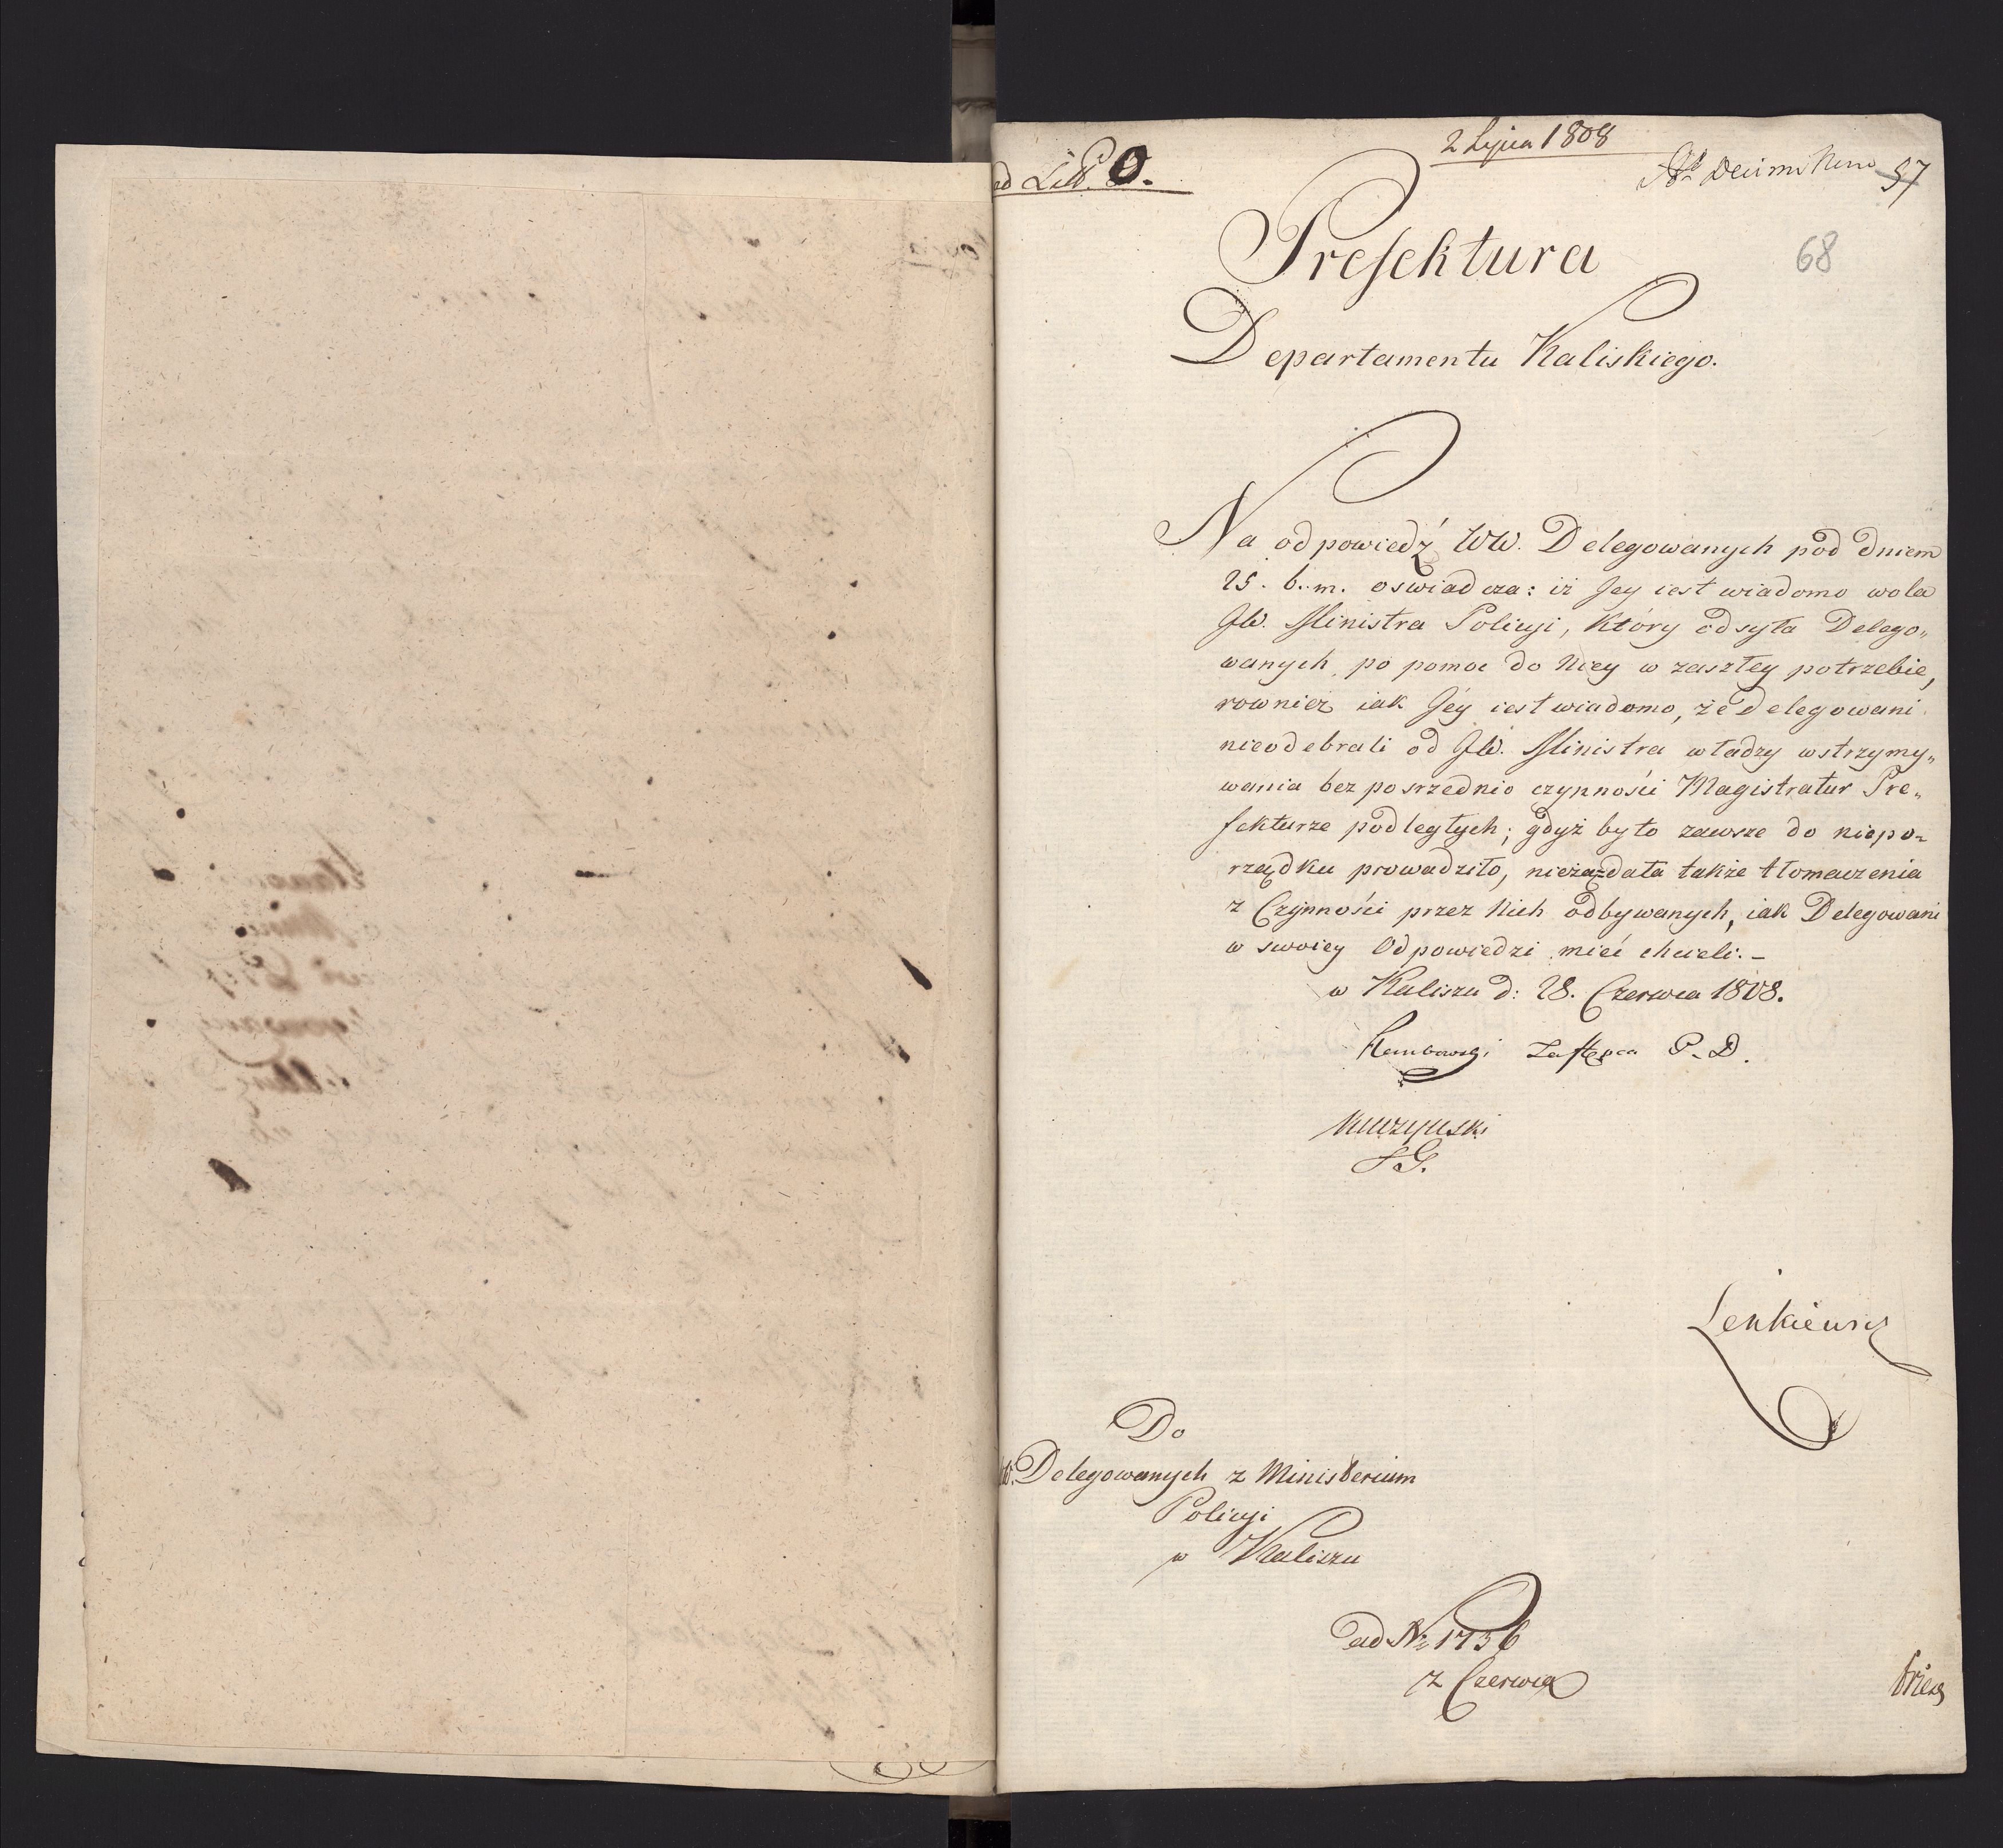 2 Lipca 1808
ad Litt. O.
Decimi Nono 57
68
Prefektura
Departamentu Kaliskiego.
Na odpowiedź WW. Delegowanych pod dniem
25. b. m. oswiadcza: iż Jey iest wiadomo wola
JW. Ministra Policyi, który odsyła Delego„
wanych, po pomoc do Niey w zaszłey potrzebie,
rownież iak Jéy iest wiadomo, że Delegowani
nieodebrali od JW. Ministra władzy wstrzymy„
wania bezposrzednio czynności Magistratur Pre„
fekturze podległych; gdyż by to zawsze do niepo-
rządku prowadziło, nieżądała także tłomaczenia
z Czynności przez Nich odbywanych, iak Delegowani
w swoiey Odpowiedzi mieć chcieli. –
w Kaliszu d: 28. Czerwca 1808.
Zastępca P. D.
SG.
Lenkiewicz
Do
W. Delegowanych z Ministerium
Policyi
w Kaliszu
ad Nr. 1736
z Czerwca